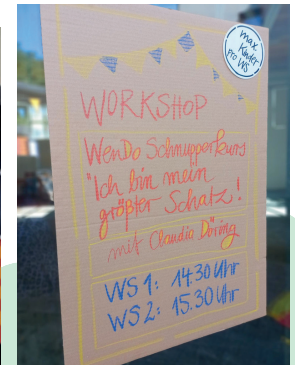 max.
Kinder
pro WS
WORKSHOP
WenDo Schnupperkurs
"Ich bin mein
größter Schatz!
mit Claudia Döring
WS 1: 14.30 Uhr
WS 2: 15.30 Uhr